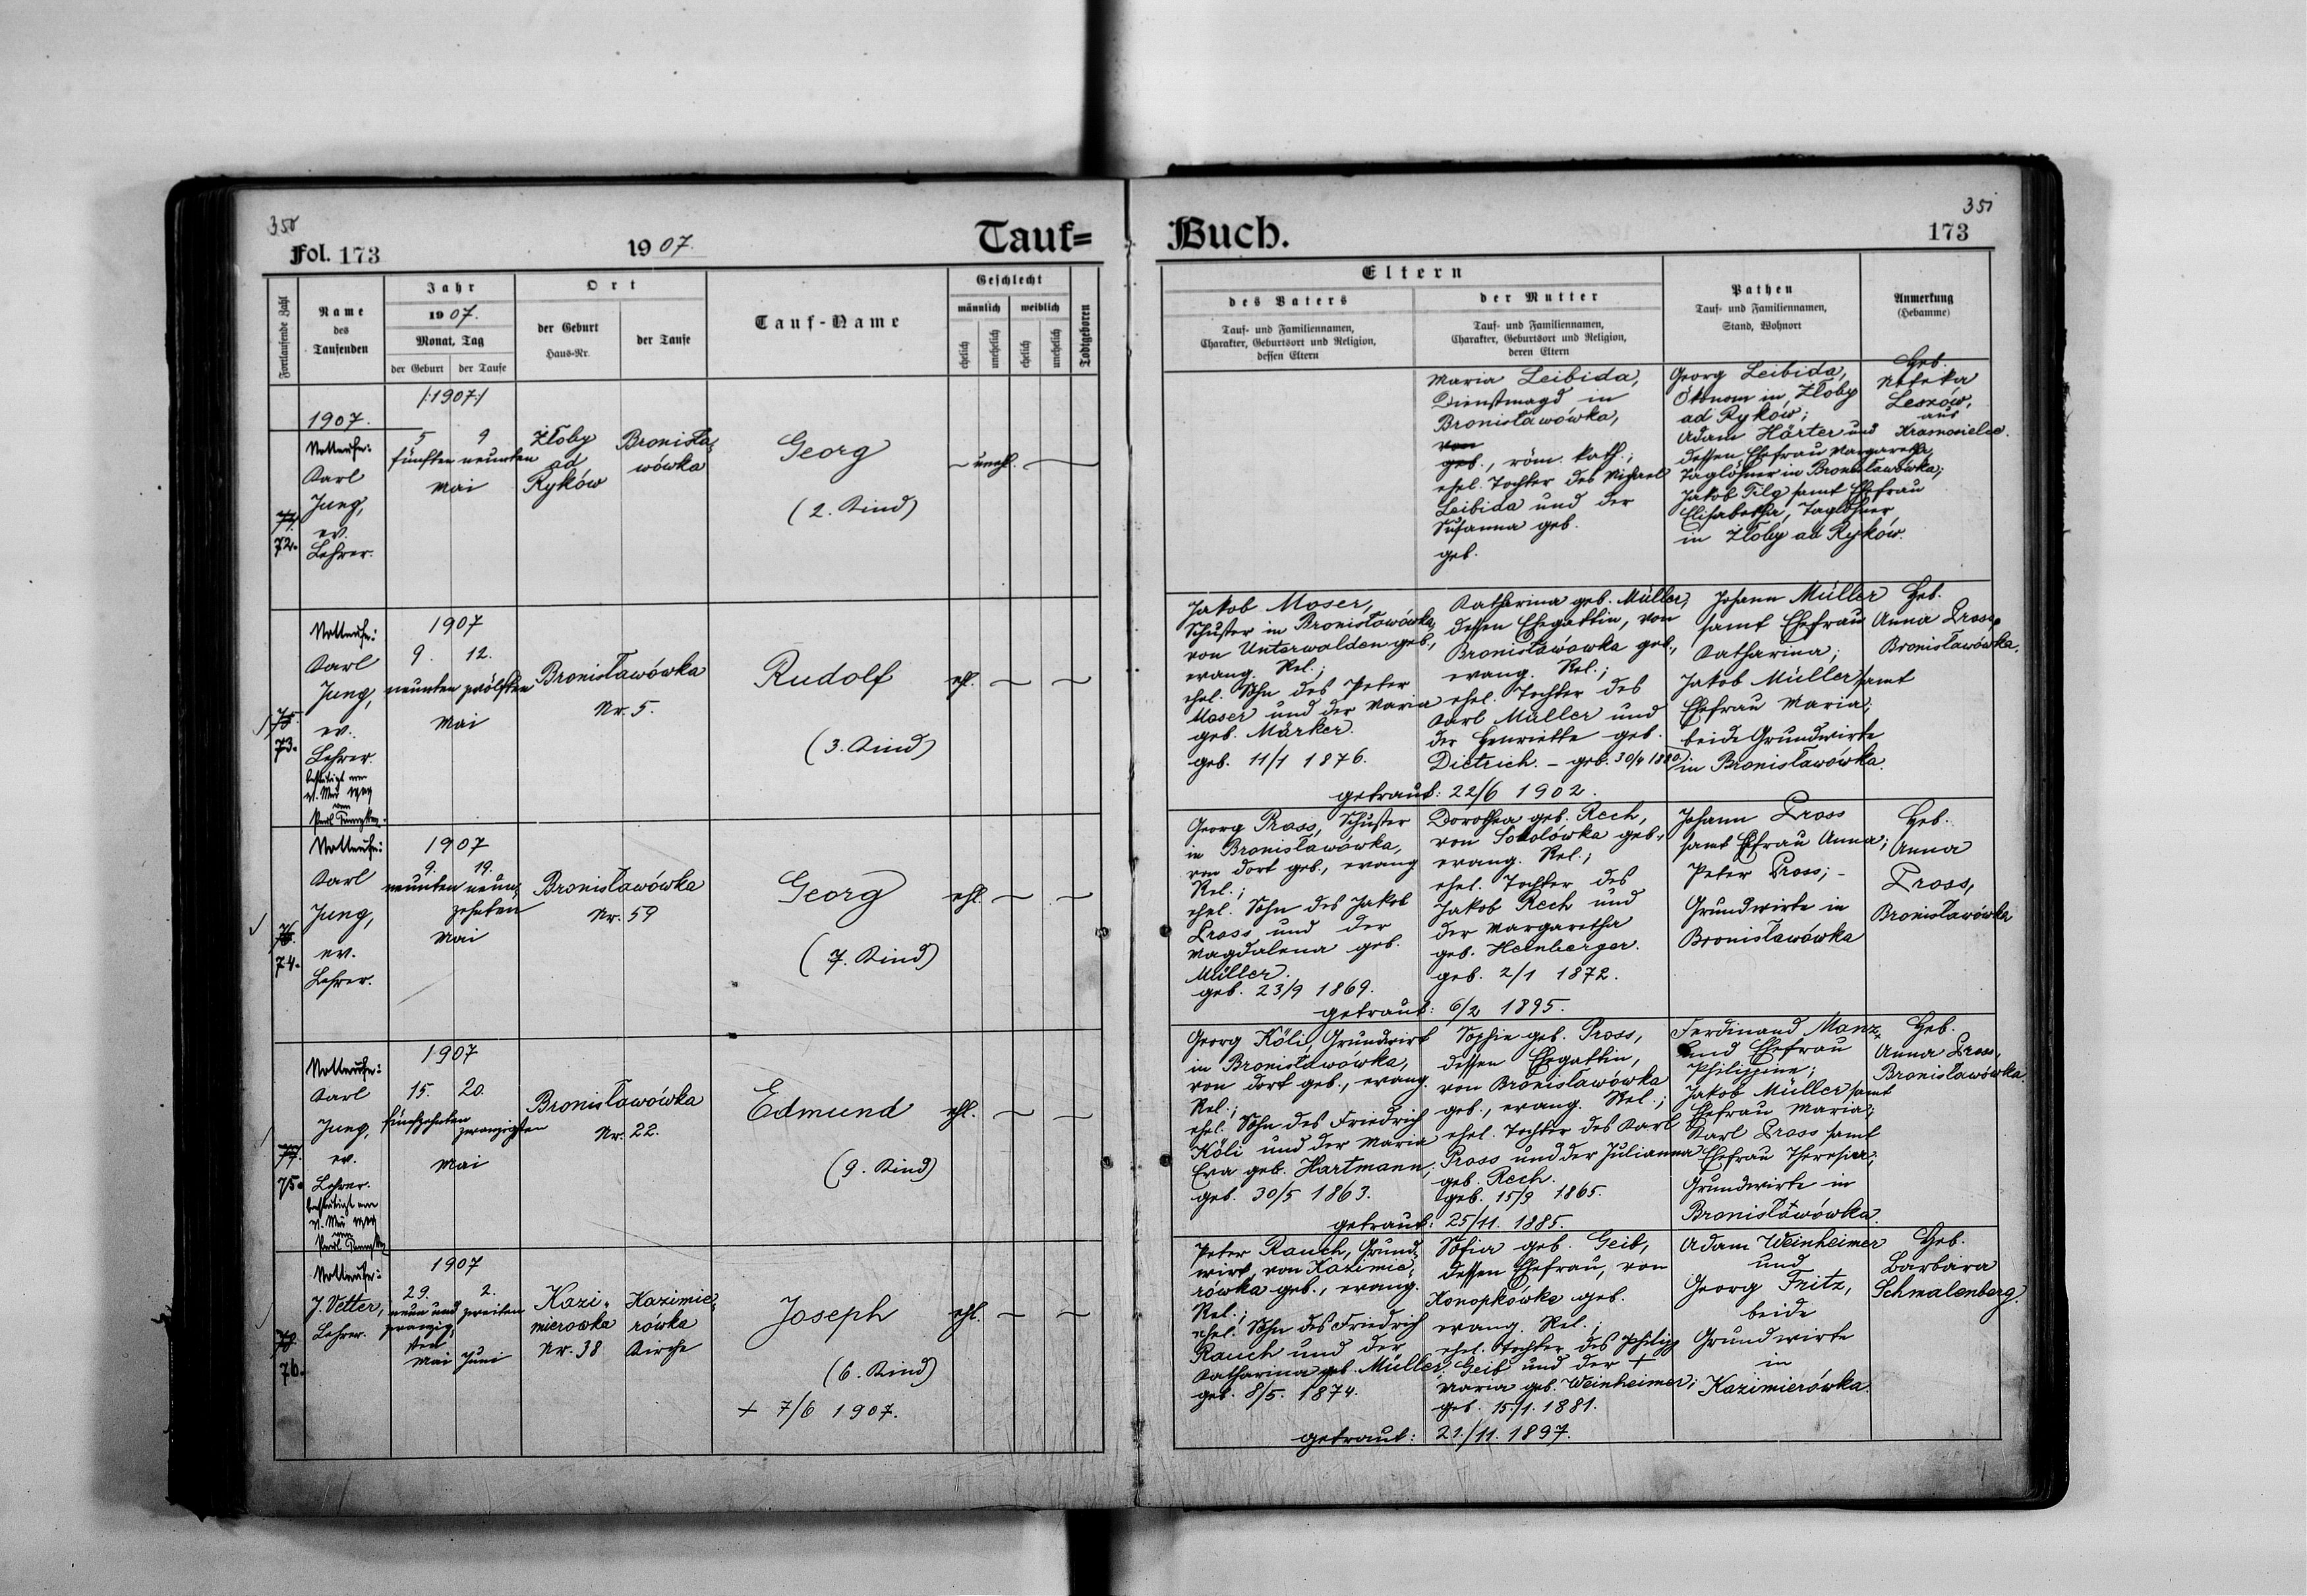 350
Fol. 173
1907.
Tauf=
Fortlaufende Zahl
Name
des
Taufenden
Jahr
1907.
Monat, Tag
der Geburt
der Taufe
Ort
der Geburt
Haus-Nr.
der Taufe
Tauf-Name
Geschlecht
männlich
weiblich
ehelich
unehelich
ehelich
unehelich
Todtgeboren
1907.
Nottaufe:
Karl
Jung,
ev.
Lehrer.
74.
72.
/:1907:/
5 9
fünften neunten
Mai
Złoby
ad
Ryków
Bronisła=
wówka
Georg
(2. Kind)
— unehl. —
Nottaufe:
Karl
Jung,
ev.
Lehrer.
bestätigt von
75.
73.
1907
9. 12.
neunten zwölften
Mai
Bronisławówka
Nr. 5.
Rudolf
(3. Kind)
ehl. — —
Nottaufe:
Karl
Jung,
ev.
Lehrer.
76.
74.
1907
9. 19.
neunten neun=
zehnten
Mai
Bronisławówka
Nr. 59
Georg
(7. Kind)
ehl. — —
Nottaufe:
Karl
Jung,
ev.
Lehrer.
bestätigt von
77.
75.
1907
15. 20.
fünfzehnten
zwanzigsten
Mai
Bronisławówka
Nr. 22.
Edmund
(9. Kind)
ehl. — —
Nottaufe:
J. Vetter,
Lehrer.
78.
76.
1907
29. 2.
neun und zweiten
zwanzig=
sten
Mai Juni
Kazi=
mierowka
Nr. 38
Kazimie=
rówka
Kirche
Joseph
(6. Kind)
+ 7/6 1907.
ehl. — —
351
Buch.
173
Eltern
des Vaters
Tauf- und Familiennamen,
Charakter, Geburtsort und Religion,
dessen Eltern
der Mutter
Tauf- und Familiennamen,
Charakter, Geburtsort und Religion,
deren Eltern
Pathen
Tauf- und Familiennamen,
Stand, Wohnort
Anmerkung
(Hebamme)
Maria Leibida,
Dienstmagd in
Bronisławówka,
von
geb., röm. kath.;
ehel. Tochter des Michael
Leibida und der
Susanna geb.
geb.
Georg Leibida,
Ökonom in Złoby
ad Ryków;
Adam Härter und
dessen Ehefrau Margaretha
Taglöhner in Bronisławówka;
Jakob Filg samt Ehefrau
Elisabetha, Taglöhner
in Złoby ad Ryków.
Heb.
Leszów,
aus
Jakob Moser,
Schuster in Bronisławówka,
von Unterwalden geb.,
evang. Rel.;
ehel. Sohn des Peter
Moser und der Maria
geb. Märker.
geb. 11/1 1876.
Katharina geb. Müller,
dessen Ehegattin, von
Bronisławówka geb.,
evang. Rel.;
ehel. Tochter des
Karl Müller und
der Henriette geb.
Dietrich. – geb. 30/4 1880
getraut: 22/6 1902.
Johann Müller
samt Ehefrau
Katharina;
Jakob Müller samt
Ehefrau Maria;
beide Grundwirte
in Bronisławówka.
Heb.
Anna Pross,
Bronisławówka.
Georg Pross, Schuster
in Bronisławówka,
von dort geb., evang
Rel.;
ehel. Sohn des Jakob
Pross und der
Magdalena geb.
Müller.
geb. 23/9 1869.
Dorothea geb. Rech,
von Sokolówka geb.,
evang. Rel.;
ehel. Tochter des
Jakob Rech und
der Margaretha
geb. Heinberger.
geb. 2/1 1872.
getraut: 6/2 1895.
Johann Pross
samt Ehefrau Anna;
Peter Pross; –
Grundwirte in
Bronisławówka
Heb.
Anna
Pross,
Bronisławówka
Georg Köli, Grundwirt
in Bronisławówka,
von dort geb., evang.
Rel.;
ehel. Sohn des Friedrich
Köli und der Maria
Eva geb. Hartmann;
geb. 30/5 1863.
Sophie geb. Pross,
dessen Ehegattin,
von Bronisławówka
geb., evang. Rel.;
ehel. Tochter des Karl
Pross und der Julianna
geb. Rech.
geb. 15/9 1865.
getraut: 25/11. 1885.
Ferdinand Manz
und Ehefrau
Philippine;
Jakob Müller samt
Ehefrau Maria;
Karl Pross samt
Ehefrau Theresia;
Grundwirte in
Bronisławówka.
Heb.
Anna Pross,
Bronisławówka.
Peter Rauch, Grund=
wirt, von Kazimie=
rówka geb., evang.
Rel.;
ehel. Sohn des Friedrich
Rauch und der
Katharina geb. Müller,
geb. 8/5. 1874.
Sofia geb. Geib,
dessen Ehefrau, von
Konopkówka geb.
evang. Rel.;
ehel. Tochter des Philipp
Geib und der +
Maria geb. Weinheimer;
geb. 15/1. 1881.
getraut: 21./11. 1897.
Adam Weinheimer
und
Georg Fritz,
beide
Grundwirte
in
Kazimierówka.
Heb.
Barbara
Schmalenberg.